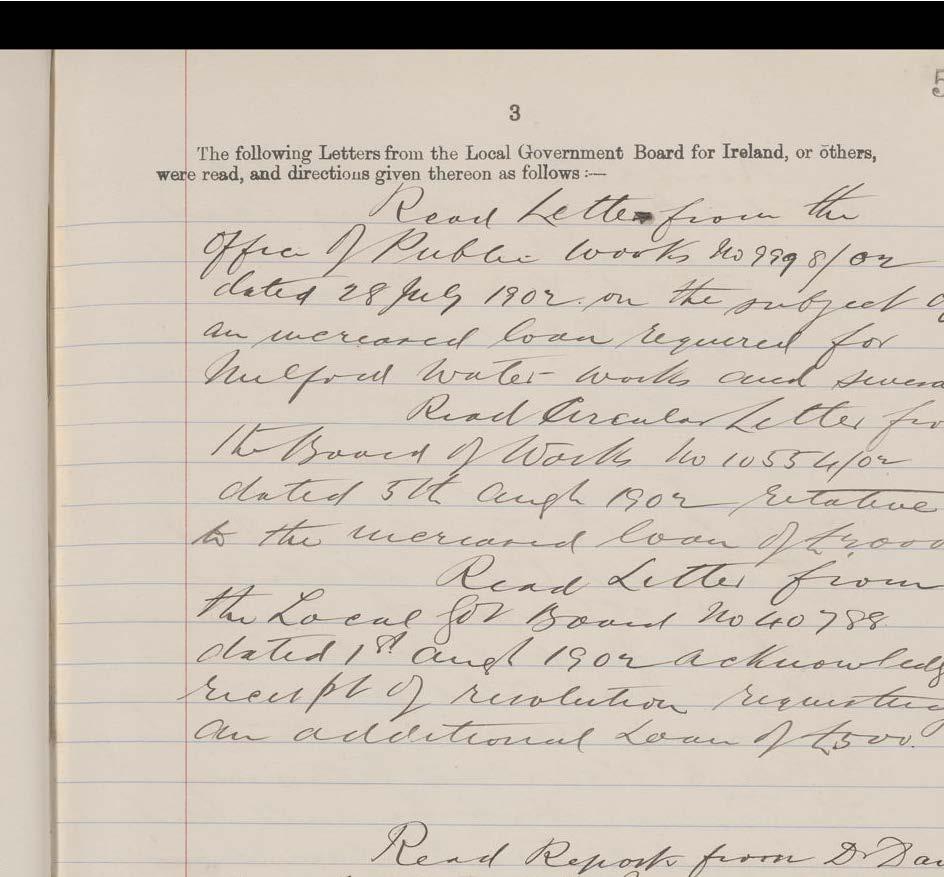 5
3
The following Letters from the Local Government Board for Ireland, or others,
were read, and directions given thereon as follows :—
Read Letter from the
Office of Public Works No 9998/02
dated 28 July 1902 on the subject o
an increased loan required for
Milford Water Works and severa
Read Circular Letter fro
the Board of Works No 10554/02
dated 5th Augt 1902 relative
to the increased loan of
Read Letter from
the Local Govt Board No 40788
dated 1st Augt 1902 acknowledg
receipt of resolution requesting
an additional Loan of £500.
Read Report from Dr